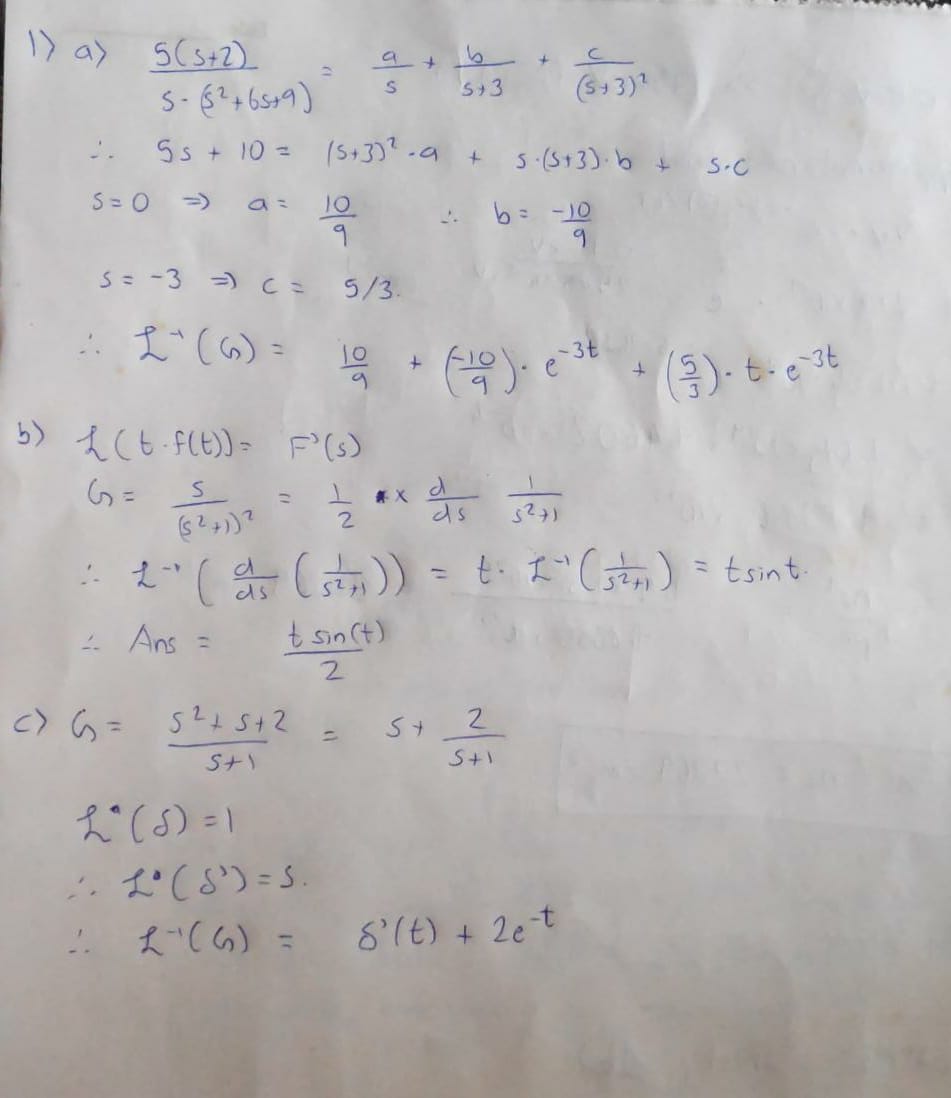 1) a) 5(s+2) / s·(s²+6s+9) = a/s + b/(s+3) + c/(s+3)²
∴ 5s + 10 = (s+3)²·a + s·(s+3)·b + s·c
s=0 ⇒ a = 10/9 ∴ b = -10/9
s = -3 ⇒ c = 5/3.
∴ ℒ⁻¹(G) = 10/9 + (-10/9)·e^-3t + (5/3)·t·e^-3t
b) ℒ(t·f(t)) = F'(s)
G = s/(s²+1)² = 1/2 × d/ds 1/(s²+1)
∴ ℒ⁻¹(d/ds(1/(s²+1))) = t·ℒ⁻¹(1/(s²+1)) = tsint.
∴ Ans = t sin(t)/2
c) G = (s²+s+2)/(s+1) = s + 2/(s+1)
ℒ(δ) = 1
∴ ℒ(δ') = s.
∴ ℒ⁻¹(G) = δ'(t) + 2e^-t